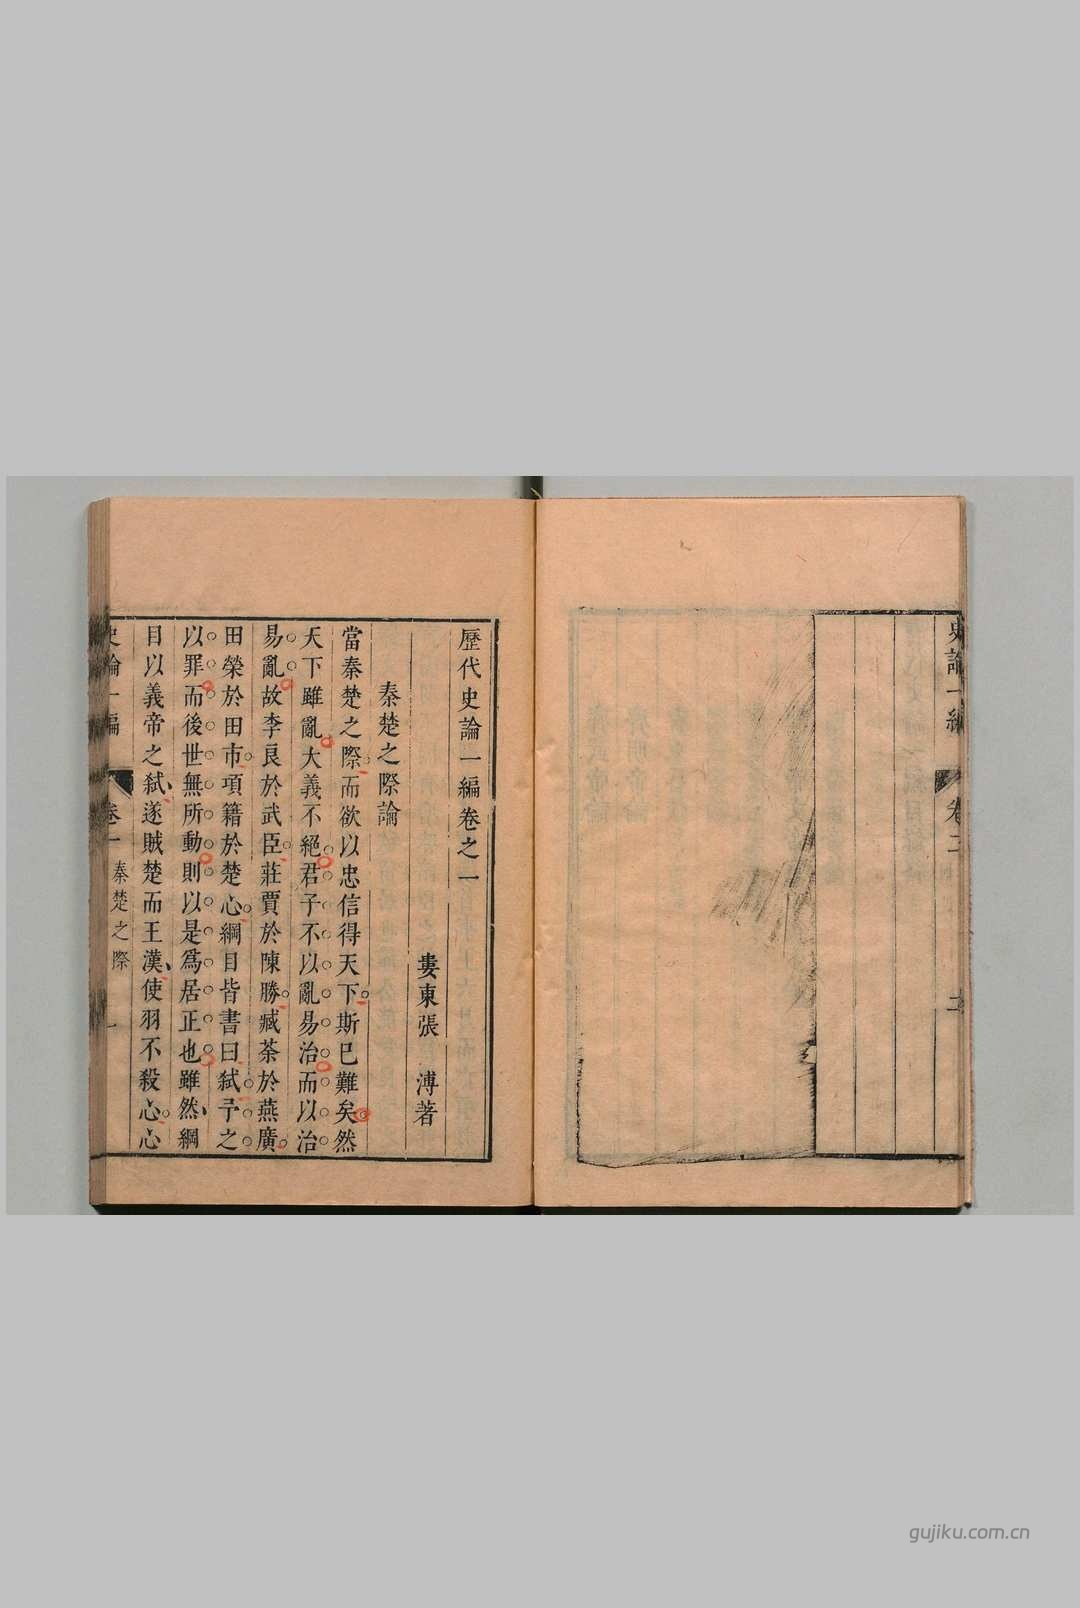 史論一編
卷二
歷代史論一編卷之一
婁東張溥著
秦楚之際論
當秦楚之際而欲以忠信得天下斯已難矣然
天下雖亂大義不絕君子不以亂易治而以治
易亂故李良於武臣莊賈於陳勝臧荼於燕廣
田榮於田市項籍於楚心綱目皆書曰弒予之
以罪而後世無所動則以是爲居正也雖然綱
目以義帝之弒遂賊楚而王漢使羽不殺心心
史論一編
卷一
秦楚之際
一
gujiku.com.cn